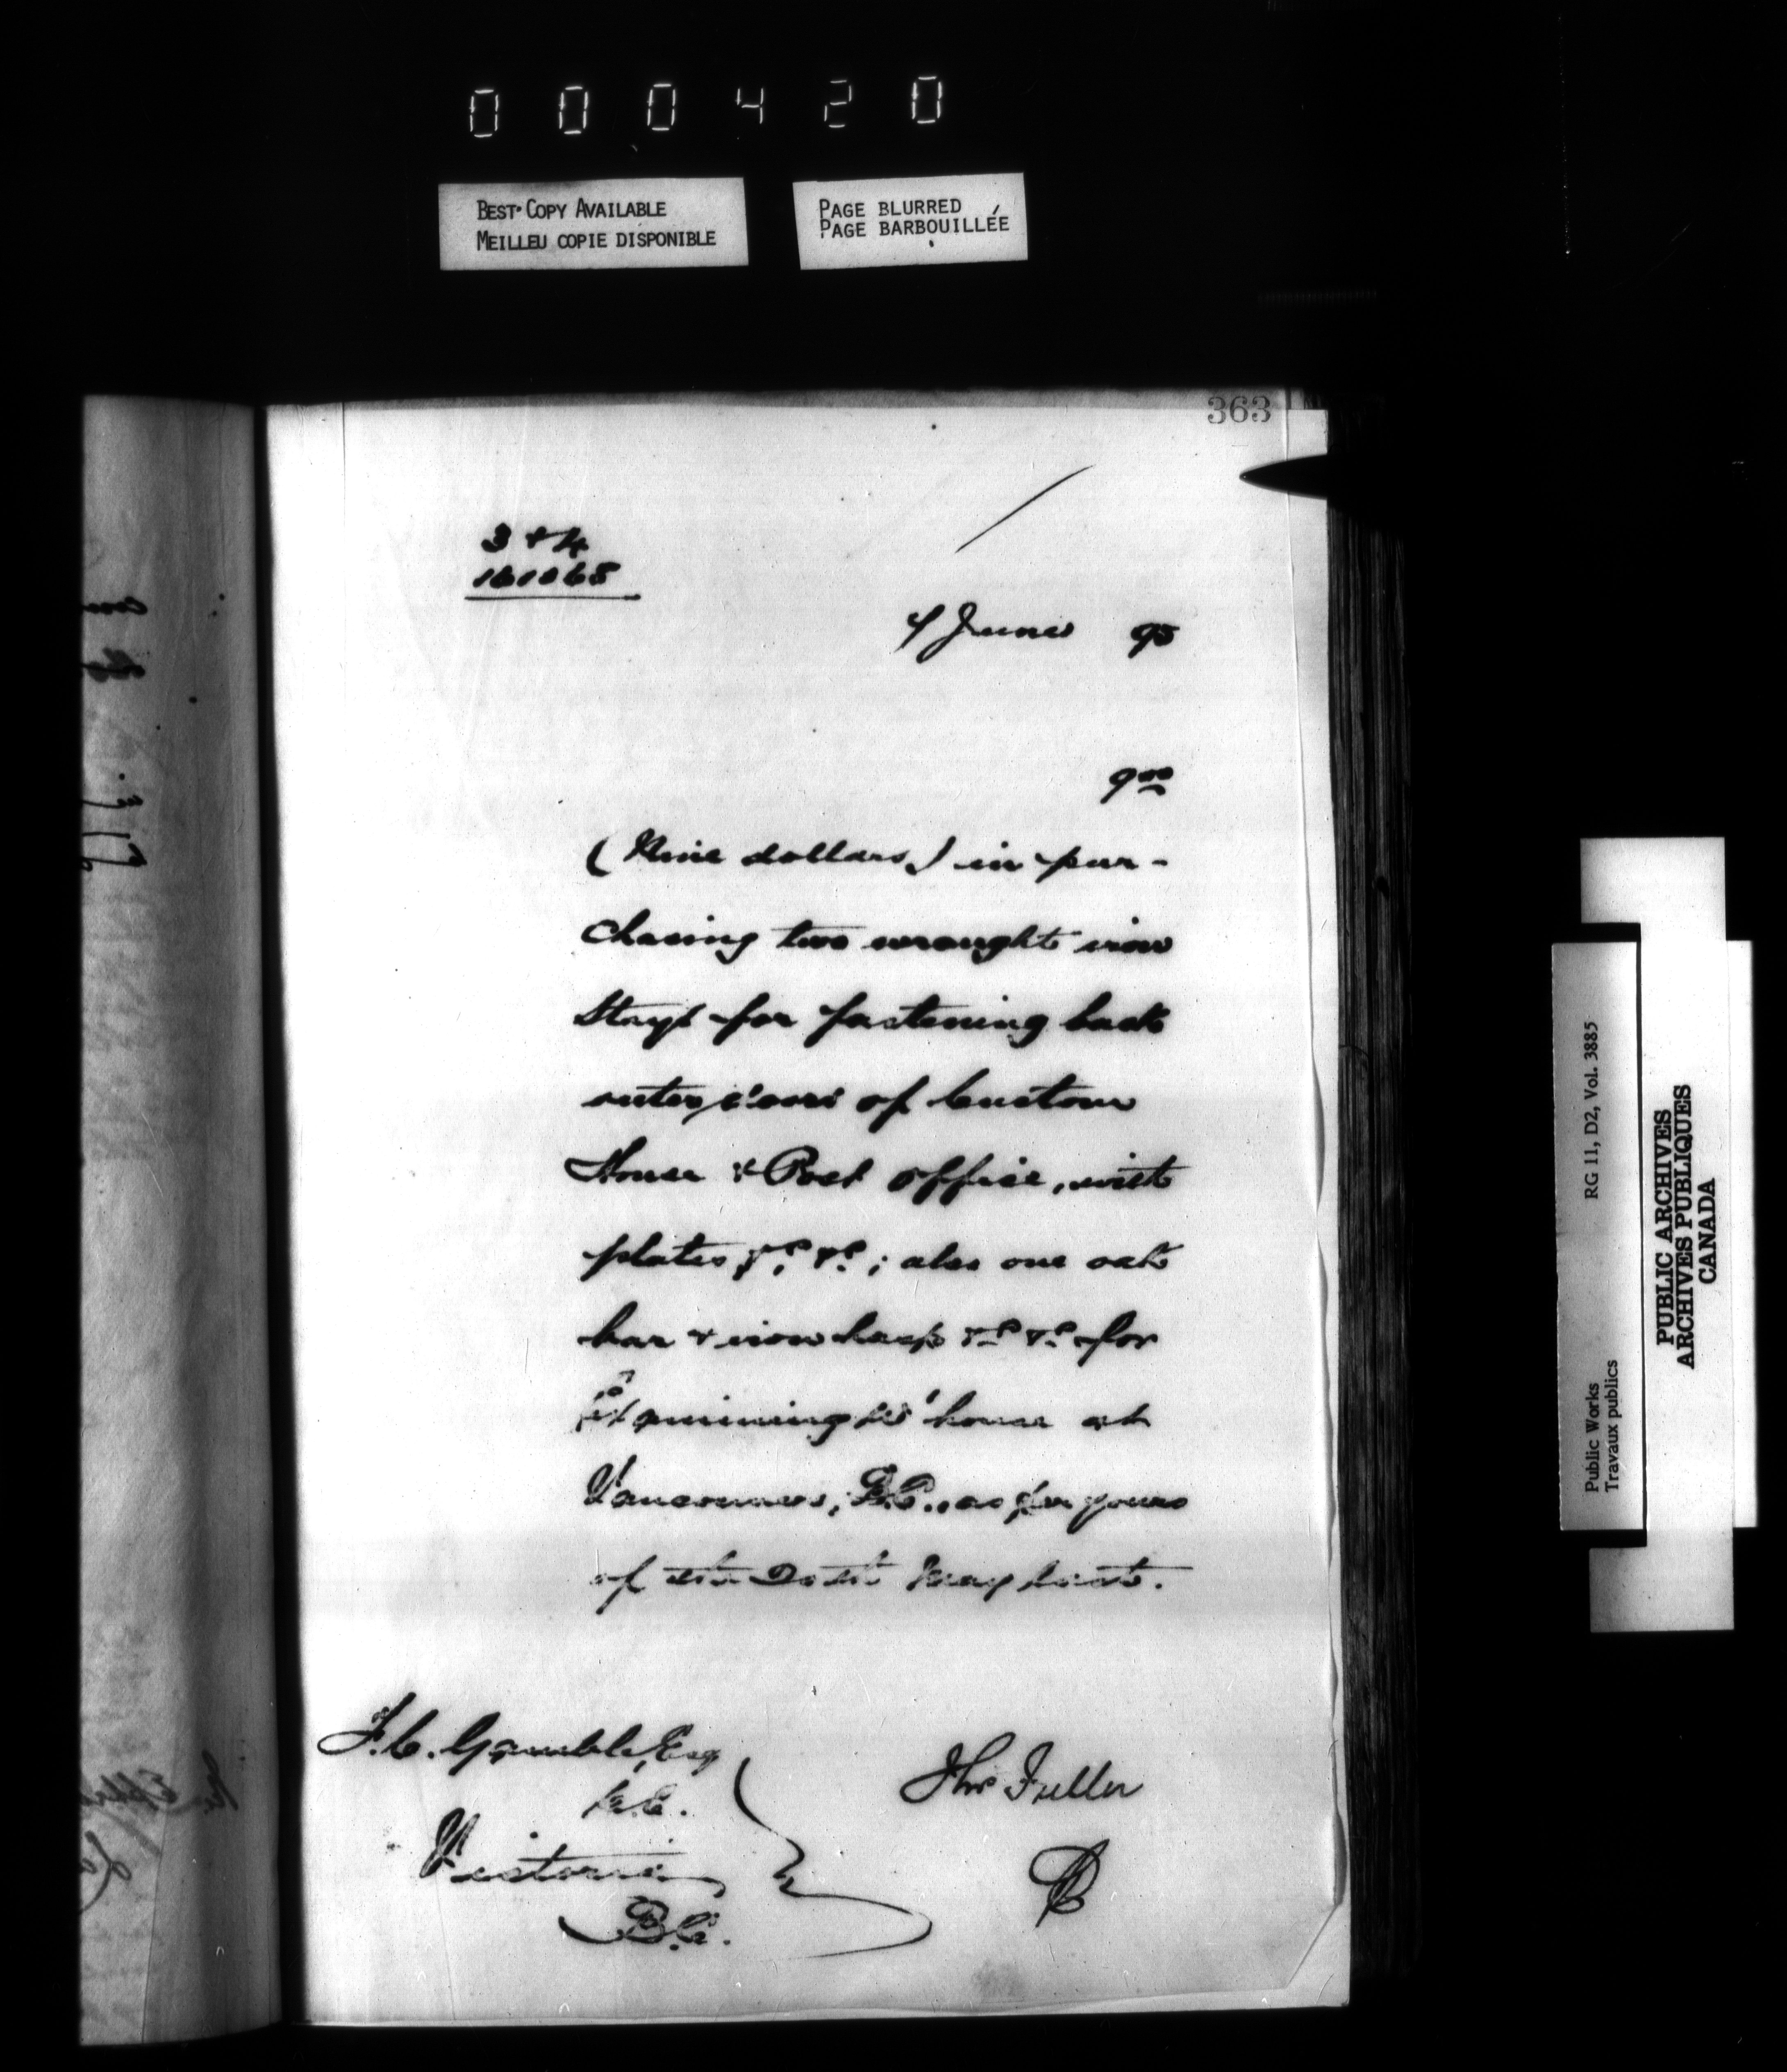 000420
BEST COPY AVAILABLE
MEILLEU COPIE DISPONIBLE
PAGE BLURRED
PAGE BARBOUILLÉE
363
3 & 4
161065
4 June 95
9.00
(Nine dollars) in pur-
chasing two wrought iron
stays for fastening back
outer doors of Custom
House & Post Office, with
plates &c. &c.; also one oak
bar & iron hasp &c &c for
Examining Wʳ house at
Vancouver, B.C., as per yours
of the 20th May last.
F.C. Gamble, Esq
Victoria
B.C.
Thos Fuller
RG 11, D2, Vol. 3885
Public Works
Travaux publics
PUBLIC ARCHIVES
ARCHIVES PUBLIQUES
CANADA